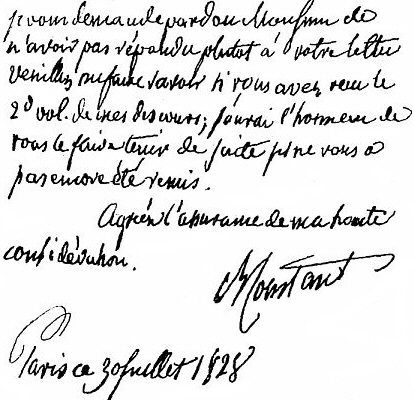 je vous demande pardon Monsieur de
n'avoir pas répondu plutot à votre lettre
veuillez me faire savoir si vous avez reçu le
2d vol. de mes discours; j'aurai l'honneur de
vous le faire tenir de suite s'il ne vous a
pas encore été remis.
Agréez l'assurance de ma haute
considération.
BConstant
Paris ce 30 Juillet 1828